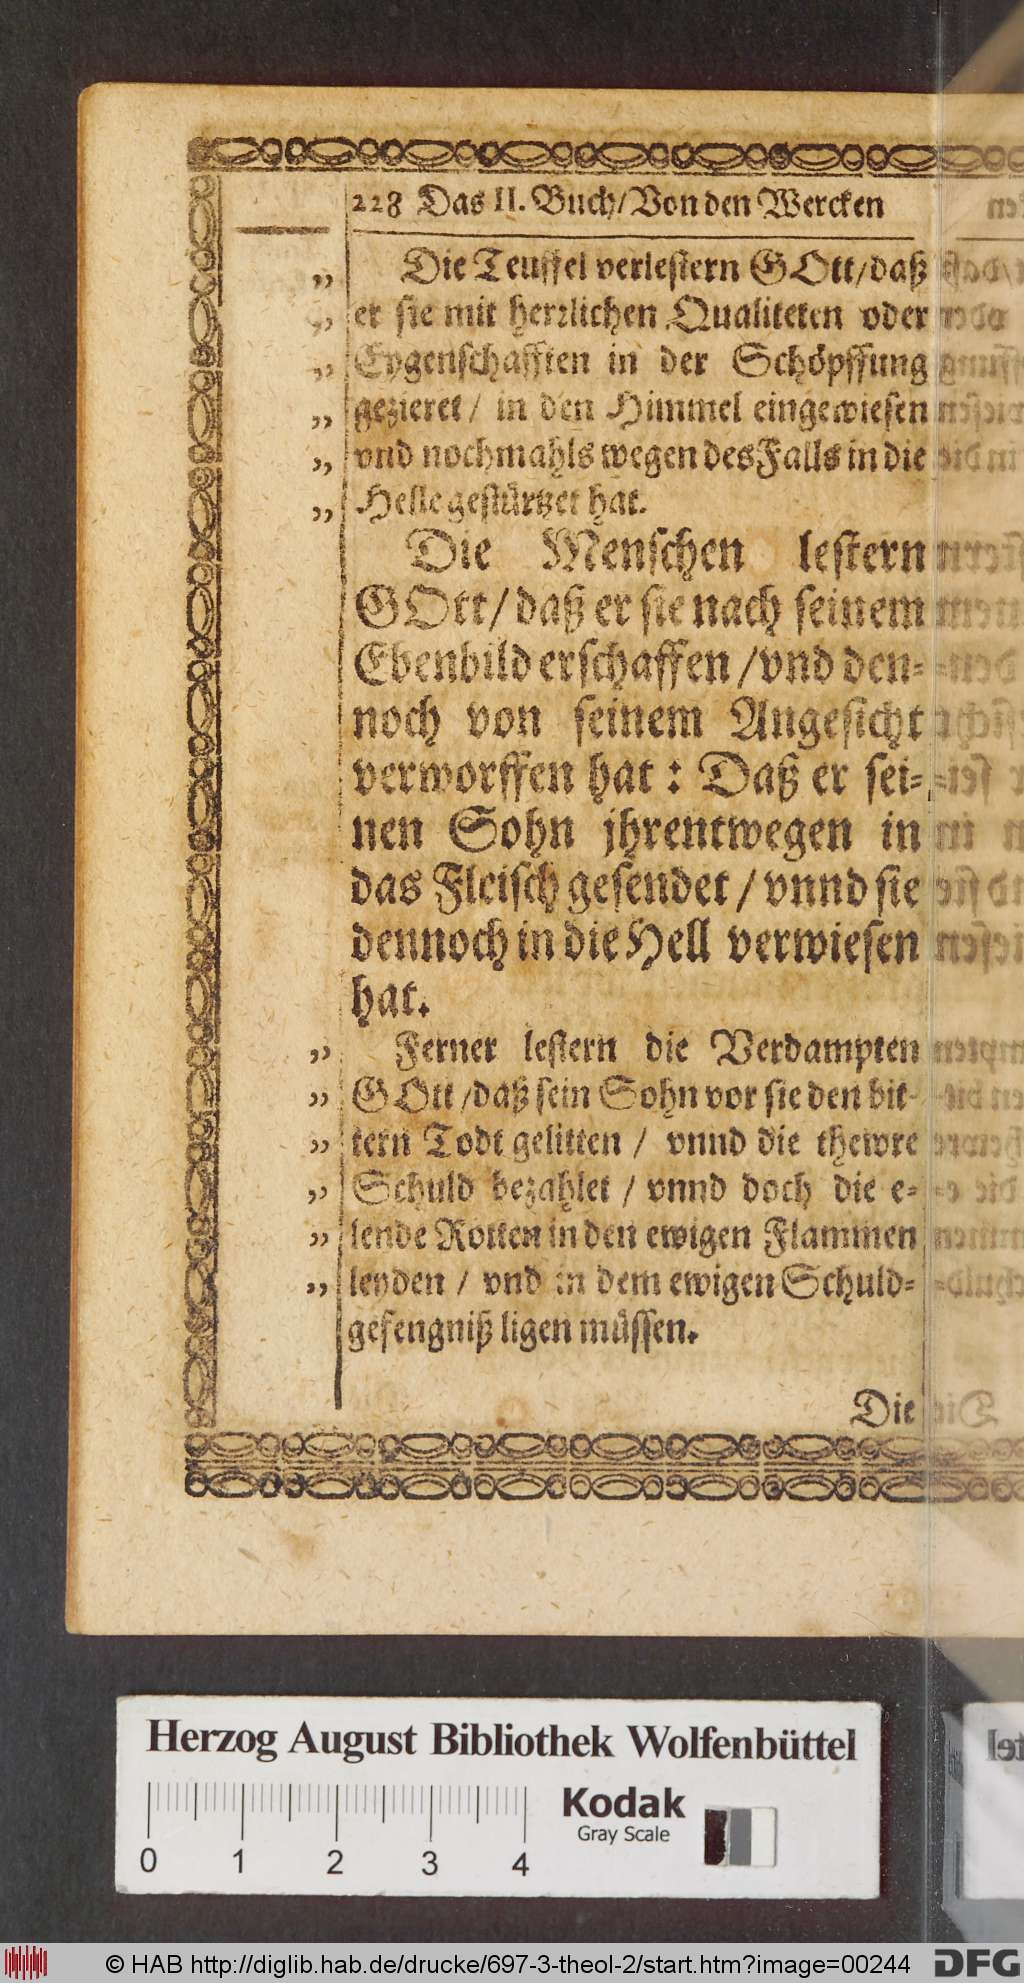 228 Das II. Buch/Von den Wercken
„ Die Teuffel verlestern GOtt/daß
„ er sie mit herrlichen Qualiteten oder
„ Eygenschafften in der Schöpffung
„ gezieret/ in den Himmel eingewiesen
„ vnd nochmahls wegen des Falls in die
„ Helle gestürtzet hat.
Die Menschen lestern
GOtt/daß er sie nach seinem
Ebenbild erschaffen/vnd den-
noch von seinem Angesicht
verworffen hat: Daß er sei-
nen Sohn jhrentwegen in
das Fleisch gesendet/vnnd sie
dennoch in die Hell verwiesen
hat.
„ Ferner lestern die Verdampten
„ GOtt/daß sein Sohn vor sie den bit-
„ tern Todt gelitten/ vnnd die thewre
„ Schuld bezahlet/ vnnd doch die e-
„ lende Rotten in den ewigen Flammen
„ leyden/ vnd in dem ewigen Schuld-
gefengniß ligen müssen.
Die
Herzog August Bibliothek Wolfenbüttel
Kodak
Gray Scale
0 1 2 3 4
© HAB http://diglib.hab.de/drucke/697-3-theol-2/start.htm?image=00244
DFG